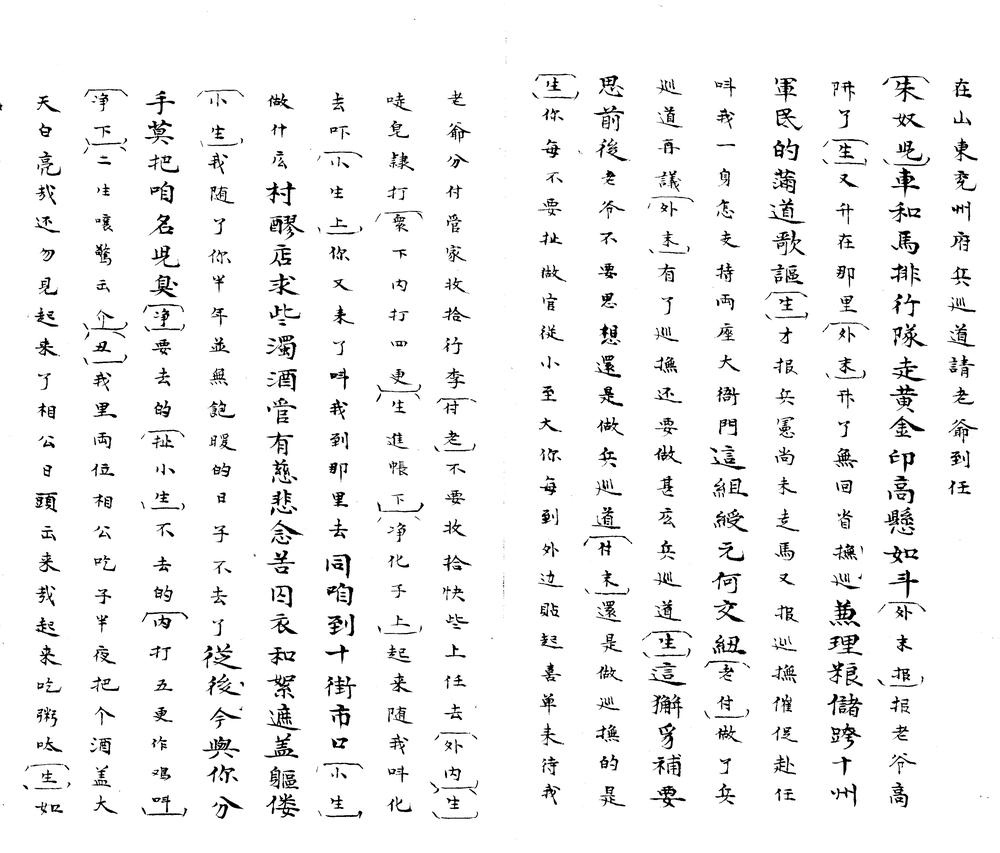 在山東兖州府兵巡道請老爺到任
朱奴児車和馬排行隊走黄金印高懸如斗外末报报老爷高
陞了生又升在那里外末升了無回省撫巡兼理粮儲跨十州
軍民的蒲道歌謳生才报兵憲尚未走馬又报巡撫催促赴任
呌我一身怎支持両座大衙門這組綬元何交紐老付做了兵
巡道再議外末有了巡撫还要做甚庅兵巡道生這獬豸補要
思前後老爷不要思想還是做兵巡道付末還是做巡撫的是
生你每不要扯做官従小至大你每到外边貼起喜单未待我
老爺分付管家收拾行李付老不要收拾快些上任去外内生
唗皂隸打衆下内打四更生進帳下净化子上起来随我呌化
去吓小生上你又来了呌我到那里去同咱到十街市口小生
做什庅村醪店求些濁酒管有慈悲念苦囚衣和絮遮盖軀偻
小生我随了你半年並無飽暖的日子不去了從後今與你分
手莫把咱名児臭净要去的扯小生不去的内打五更作鸡呌
净下二生嚷驚云介丑我里両位相公吃子半夜把个酒盖大
天白亮哉还勿見起来了相公日頭出来哉起来吃粥呔生如